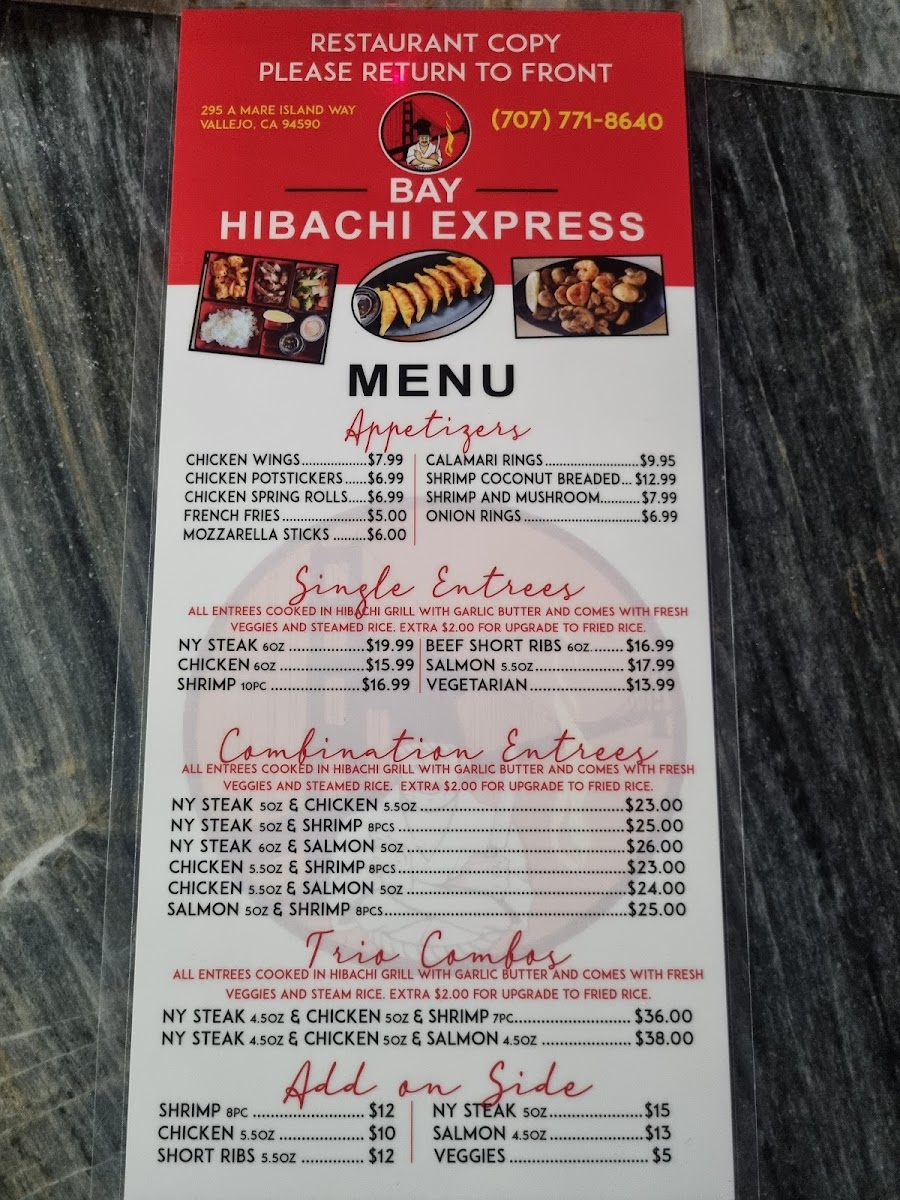 RESTAURANT COPY
PLEASE RETURN TO FRONT
295 A MARE ISLAND WAY
VALLEJO, CA 94590
(707) 771-8640
BAY
HIBACHI EXPRESS
MENU
Appetizers
CHICKEN WINGS..................$7.99
CHICKEN POTSTICKERS......$6.99
CHICKEN SPRING ROLLS.....$6.99
FRENCH FRIES.......................$5.00
MOZZARELLA STICKS .........$6.00
CALAMARI RINGS..........................$9.95
SHRIMP COCONUT BREADED... $12.99
SHRIMP AND MUSHROOM...........$7.99
ONION RINGS................................$6.99
Single Entrees
ALL ENTREES COOKED IN HIBACHI GRILL WITH GARLIC BUTTER AND COMES WITH FRESH
VEGGIES AND STEAMED RICE. EXTRA $2.00 FOR UPGRADE TO FRIED RICE.
NY STEAK 6OZ ..................$19.99
CHICKEN 6OZ ....................$15.99
SHRIMP 10PC .....................$16.99
BEEF SHORT RIBS 6OZ........$16.99
SALMON 5.5OZ......................$17.99
VEGETARIAN.......................$13.99
Combination Entrees
ALL ENTREES COOKED IN HIBACHI GRILL WITH GARLIC BUTTER AND COMES WITH FRESH
VEGGIES AND STEAMED RICE. EXTRA $2.00 FOR UPGRADE TO FRIED RICE.
NY STEAK 5OZ & CHICKEN 5.5OZ..............................................$23.00
NY STEAK 5OZ & SHRIMP 8PCS ..................................................$25.00
NY STEAK 6OZ & SALMON 5OZ.................................................$26.00
CHICKEN 5.5OZ & SHRIMP 8PCS..................................................$23.00
CHICKEN 5.5OZ & SALMON 5OZ .................................................$24.00
SALMON 5OZ & SHRIMP 8PCS......................................................$25.00
Trio Combos
ALL ENTREES COOKED IN HIBACHI GRILL WITH GARLIC BUTTER AND COMES WITH FRESH
VEGGIES AND STEAM RICE. EXTRA $2.00 FOR UPGRADE TO FRIED RICE.
NY STEAK 4.5OZ & CHICKEN 5OZ & SHRIMP 7PC.......................... $36.00
NY STEAK 4.5OZ & CHICKEN 5OZ & SALMON 4.5OZ .................... $38.00
Add on Side
SHRIMP 8PC ......................... $12
CHICKEN 5.5OZ ................... $10
SHORT RIBS 5.5OZ ............... $12
NY STEAK 5OZ.....................$15
SALMON 4.5OZ.....................$13
VEGGIES...............................$5